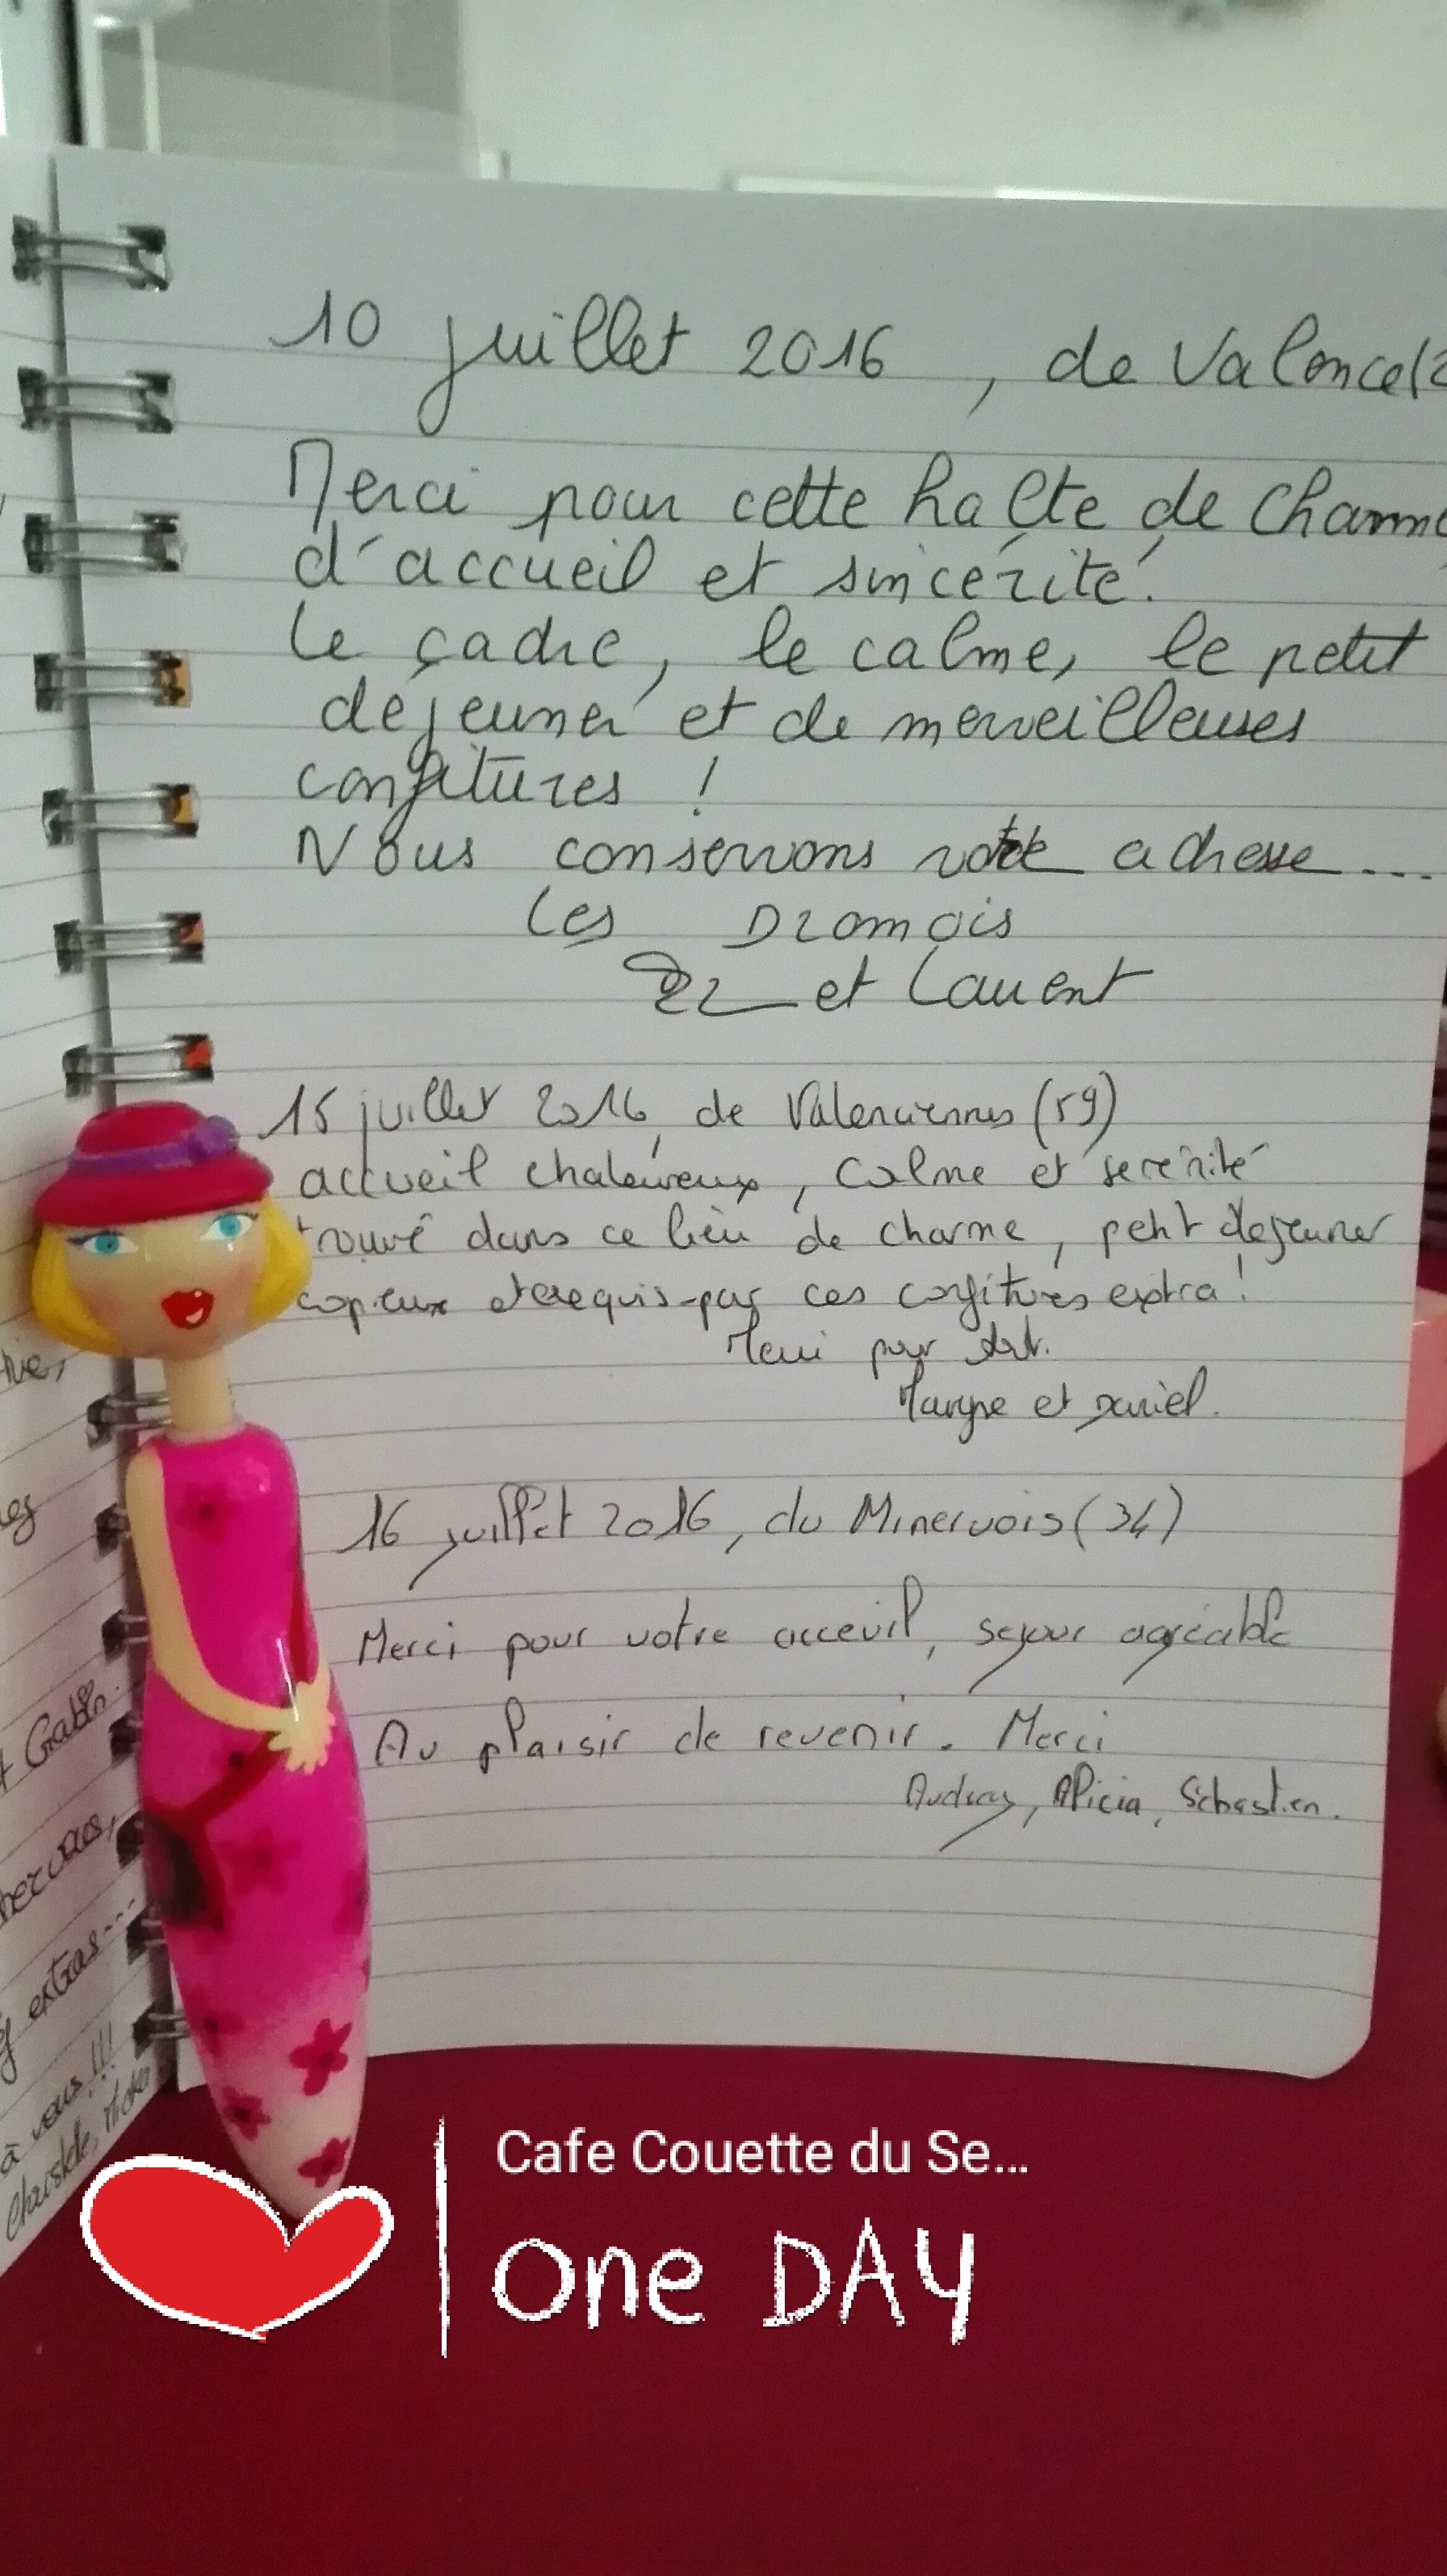 10 juillet 2016, de Valence(2
Merci pour cette halte de charme
d'accueil et sincérité.
Le cadre, le calme, le petit
déjeuner et de merveilleuses
confitures !
Nous conservons votre adresse....
Les Dromois
et Laurent
15 juillet 2016, de Valenciennes (59)
accueil chaleureux, calme et serénité
trouvé dans ce lieu de charme, petit dejeuner
copieux et exquis par ces confitures extra !
Merci pour tout.
et Daniel.
16 juillet 2016, du Minervois (34)
Merci pour votre acceuil, sejour agréable
Au plaisir de revenir. Merci
Audrey, Alicia, Sébastien.
t Gabin.
extras...
à vous !!!
Cafe Couette du Se...
one DAY